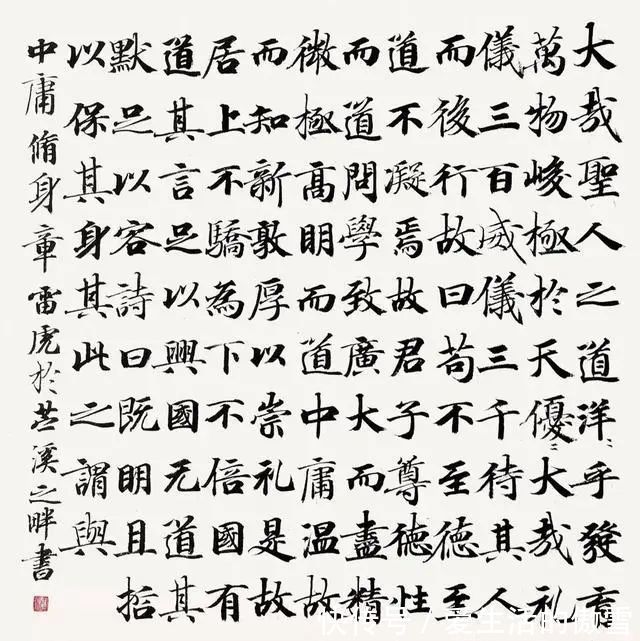 大哉聖人之道洋〻乎發育
萬物峻極於天優〻大哉礼
儀三百威儀三千待其人
而後行故曰苟不至德至
道不凝焉故君子尊德性
而道問學致廣大而盡精
微極高明而道中庸温故
而知新敦厚以崇礼是故
居上不驕為下不倍國有
道其言足以興國无道其
默足以容詩曰既明且哲
以保其身其此之謂與
中庸脩身章雷虎於苕溪之畔書
快传号 / 爱生活的傲雪